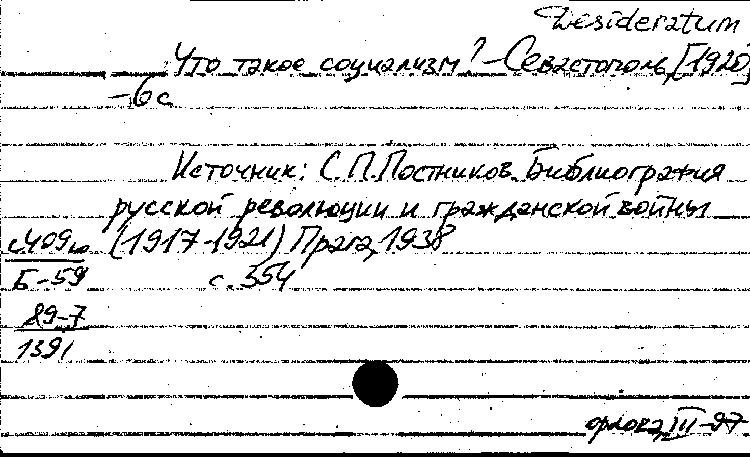 Desideratum
Что такое социализм? - Севастополь, [1920]
- 6 с
Источник: С.П. Постников. Библиография
русской революции и гражданской войны
(1917-1921) Прага, 1938
с. 354
Б-59
89-7
1391
III-97